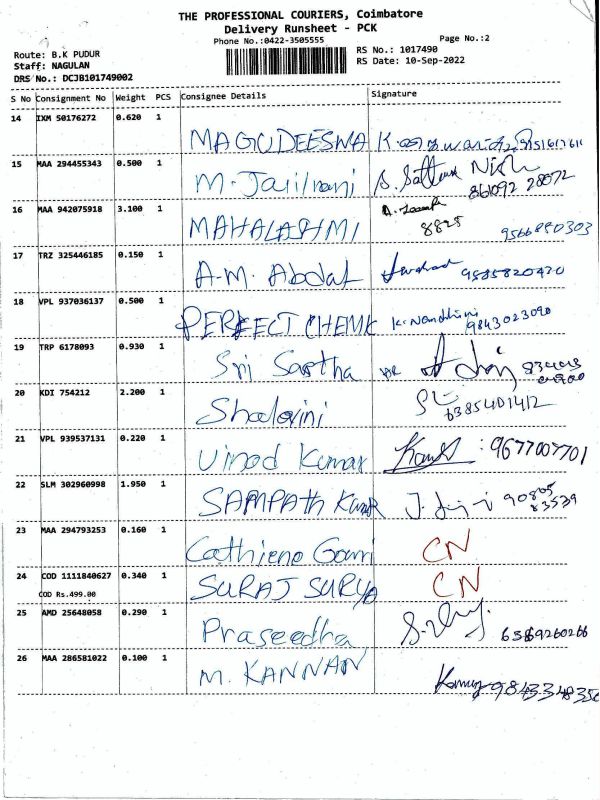 THE PROFESSIONAL COURIERS, Coimbatore
Delivery Runsheet - PCK
Phone No.:0422-3505555
Page No.:2
Route: B.K PUDUR
RS No.: 1017490
Staff: NAGULAN
RS Date: 10-Sep-2022
DRS No.: DCJB101749002
S No Consignment No Weight PCS Consignee Details Signature
14 IXM 50176272 0.620 1
MAGUDEESWA
15 MAA 294455343 0.500 1
M. Jailrani 86109228072
16 MAA 942075918 3.100 1
8825
MAHALAShMI 9566880303
17 TRZ 325446185 0.150 1
A.M. Abdal 9585820420
18 VPL 937036137 0.500 1
PERFECT CHEMK K. Nandhini 9843023090
19 TRP 6178093 0.930 1
Sri Sastha
20 KDI 754212 2.200 1
Shalovini 6385401412
21 VPL 939537131 0.220 1
Vinod Kumar : 9677007701
22 SLM 302960998 1.950 1
SAMPATH Kumar 90805
83539
23 MAA 294793253 0.160 1
Gowri CN
24 COD 1111840627 0.340 1
COD Rs.499.00
SURAJ SURYA CN
25 AMD 25648058 0.290 1
Praseedha 6389260266
26 MAA 286581022 0.100 1
M. KANNAN 984334835